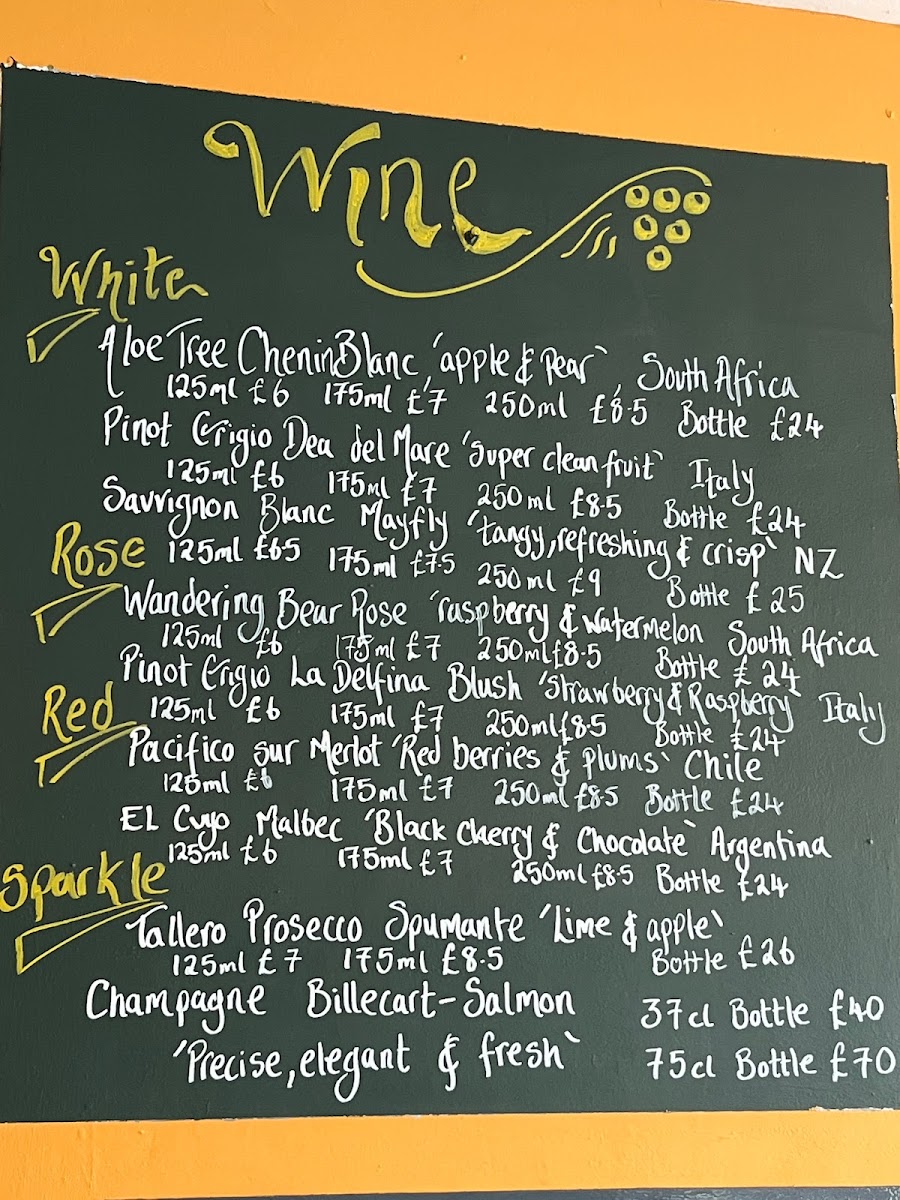 Wine
White
Aloe Tree Chenin Blanc 'apple & pear' South Africa
125ml £6 175ml £7 250ml £8.5 Bottle £24
Pinot Grigio Dea del Mare 'super clean fruit' Italy
125ml £6 175ml £7 250ml £8.5 Bottle £24
Sauvignon Blanc Mayfly 'tangy, refreshing & crisp' NZ
125ml £6.5 175ml £7.5 250ml £9 Bottle £25
Rose
Wandering Bear Rose 'raspberry & watermelon South Africa
125ml £6 175ml £7 250ml £8.5 Bottle £24
Pinot Grigio La Delfina Blush 'Strawberry & Raspberry' Italy
125ml £6 175ml £7 250ml £8.5 Bottle £24
Red
Pacifico sur Merlot 'Red berries & plums' Chile
125ml £6 175ml £7 250ml £8.5 Bottle £24
EL Cuyo Malbec 'Black Cherry & Chocolate' Argentina
125ml £6 175ml £7 250ml £8.5 Bottle £24
Sparkle
Tallero Prosecco Spumante 'Lime & apple'
125ml £7 175ml £8.5 Bottle £26
Champagne Billecart-Salmon 37cl Bottle £40
'Precise, elegant & fresh' 75cl Bottle £70